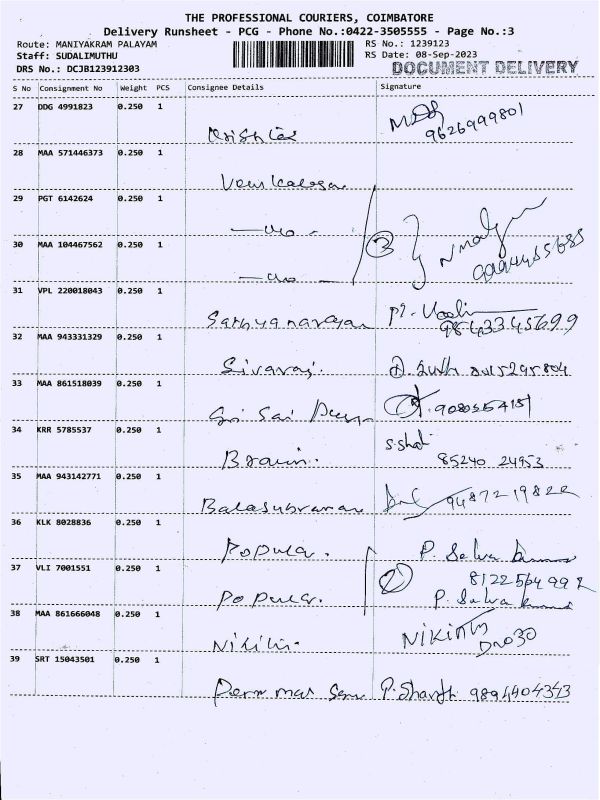 THE PROFESSIONAL COURIERS, COIMBATORE
Delivery Runsheet - PCG - Phone No.:0422-3505555 - Page No.:3
Route: MANIYAKRAM PALAYAM RS No.: 1239123
Staff: SUDALIMUTHU RS Date: 08-Sep-2023
DRS No.: DCJB123912303 DOCUMENT DELIVERY
S No Consignment No Weight PCS Consignee Details Signature
27 DDG 4991823 0.250 1
9626999801
28 MAA 571446373 0.250 1
29 PGT 6142624 0.250 1
30 MAA 104467562 0.250 1
31 VPL 220018043 0.250 1
Sathyanarayan
9843345699
32 MAA 943331329 0.250 1
Sivaraj.
33 MAA 861518039 0.250 1
Sri Sai
34 KRR 5785537 0.250 1
85240 24953
35 MAA 943142771 0.250 1
Balasubraman 9487219822
36 KLK 8028836 0.250 1
Popular. P. Selva kumar
37 VLI 7001551 0.250 1 2
8122564992
Popular. P. Selva kumar
38 MAA 861666048 0.250 1
39 SRT 15043501 0.250 1
P. Sharath 9894404343